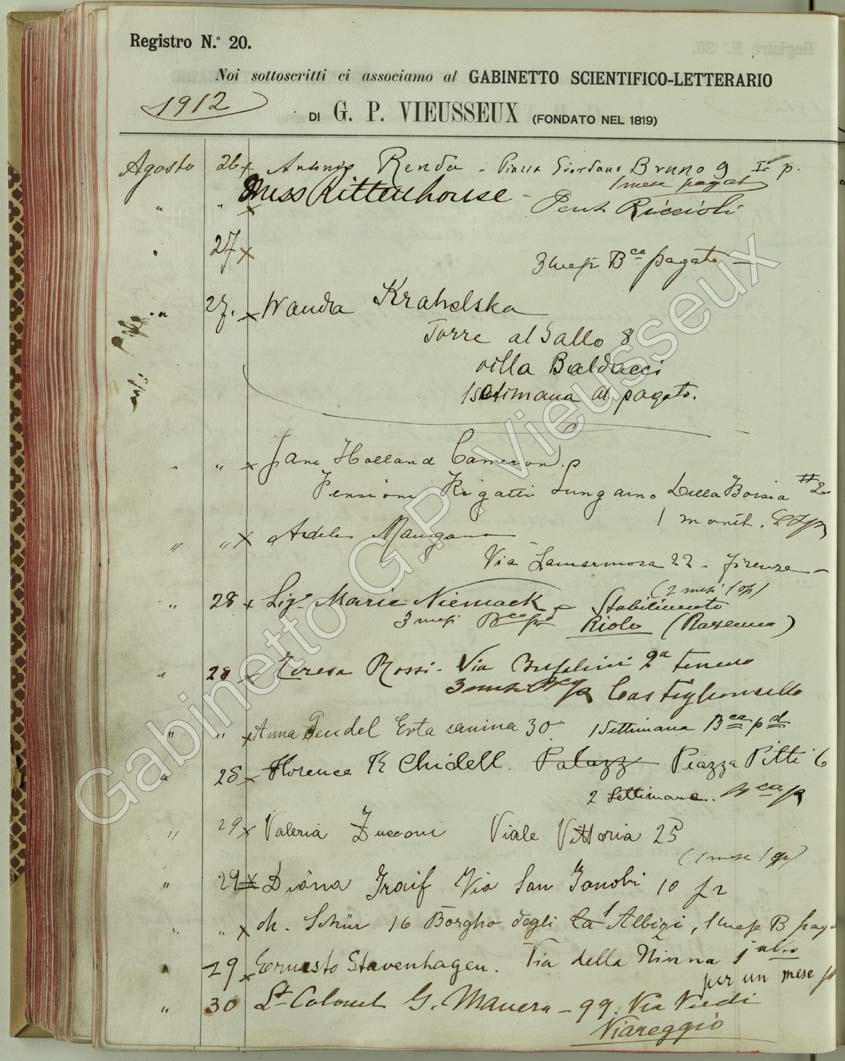 Registro N.º 20.
Noi sottoscritti ci associamo al GABINETTO SCIENTIFICO-LETTERARIO
1912
DI G. P. VIEUSSEUX (FONDATO NEL 1819)
Agosto 26 x Antonio Renda - Piazza Giordano Bruno 9 Iº p.
1 mese pagato
" " x Miss Rittenhouse - Pens. Riccioli
" 27 x
3 mesi Bca pagato —
" 27. x Wanda Krahelska
Torre al Gallo 8
villa Baldacci
1 settimana al pagato.
" " x Jane Holland Cameron
Pensione Rigatti Lungarno Della Borsia # 2
1 month.
" " x Adele Mangano
Via Lamarmora 22 - Firenze -
(2 mesi
" 28 x Sigª Marie Niemack Stabilimento
3 mesi Bca Riolo (Ravenna)
" 28 x Teresa Rossi - Via Bufalini 2ª
3 mesi Castiglioncello
" " x Anna Pendel Erta canina 30 1 Settimana Bca pd
" 28 x Florence K Chidell. Palazz Piazza Pitti 6
2 Settimane. Bca
" 29 x Valeria Zucconi Viale Vittoria 25
(1 mese
" 29 x Diana Graif Via San Zanobi 10
" " x Schür 16 Borgho degli Albizi, 1 mese B pag
" 29 x Ernesto Stavenhagen. Via della Ninna 1
per un mese
" 30 Lt-Colonel G. Manera - 99. Via Verdi
Viareggio
Gabinetto G.P. Vieusseux